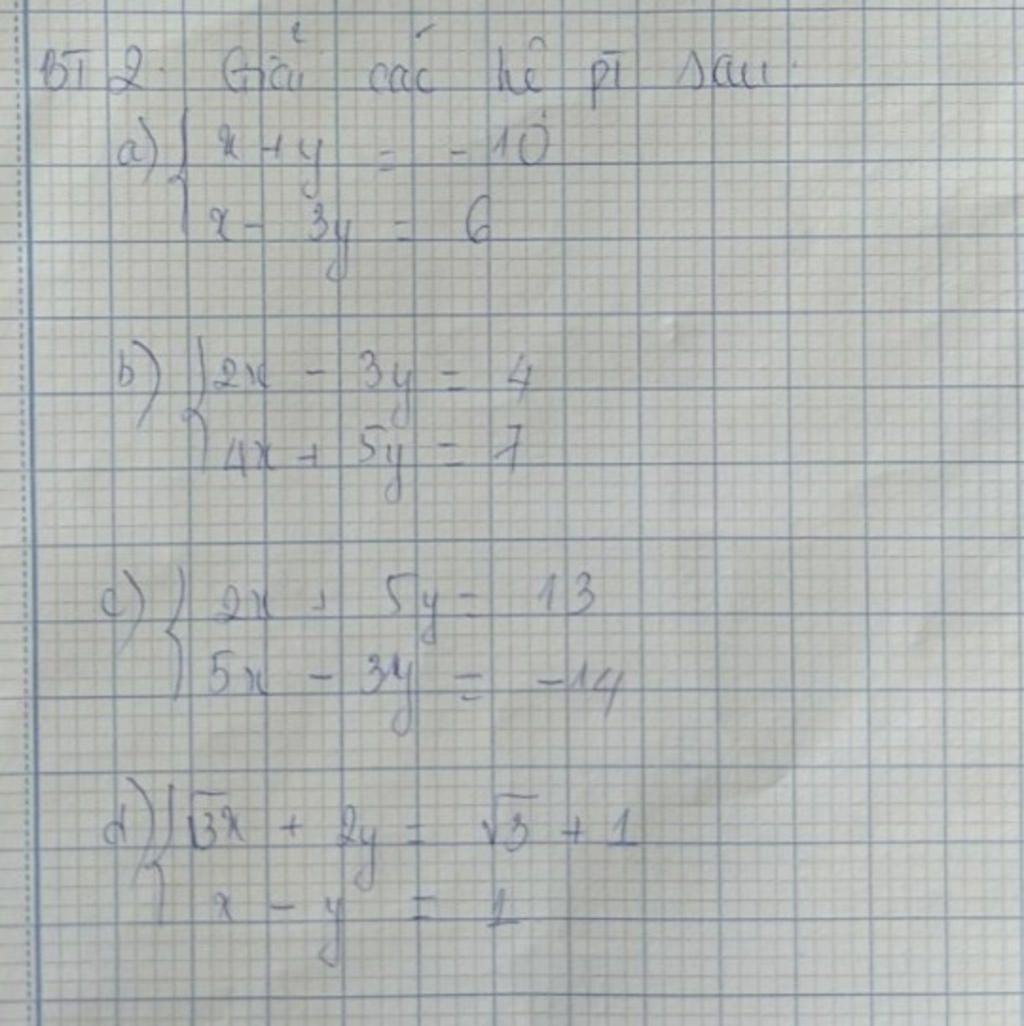 BT 2. Giải các hệ pt sau:
a) { x + y = - 10
x - 3y = 6
b) { 2x - 3y = 4
4x + 5y = 7
c) { 2x + 5y = 13
5x - 3y = -14
d) { √3x + 2y = √3 + 1
x - y = 1